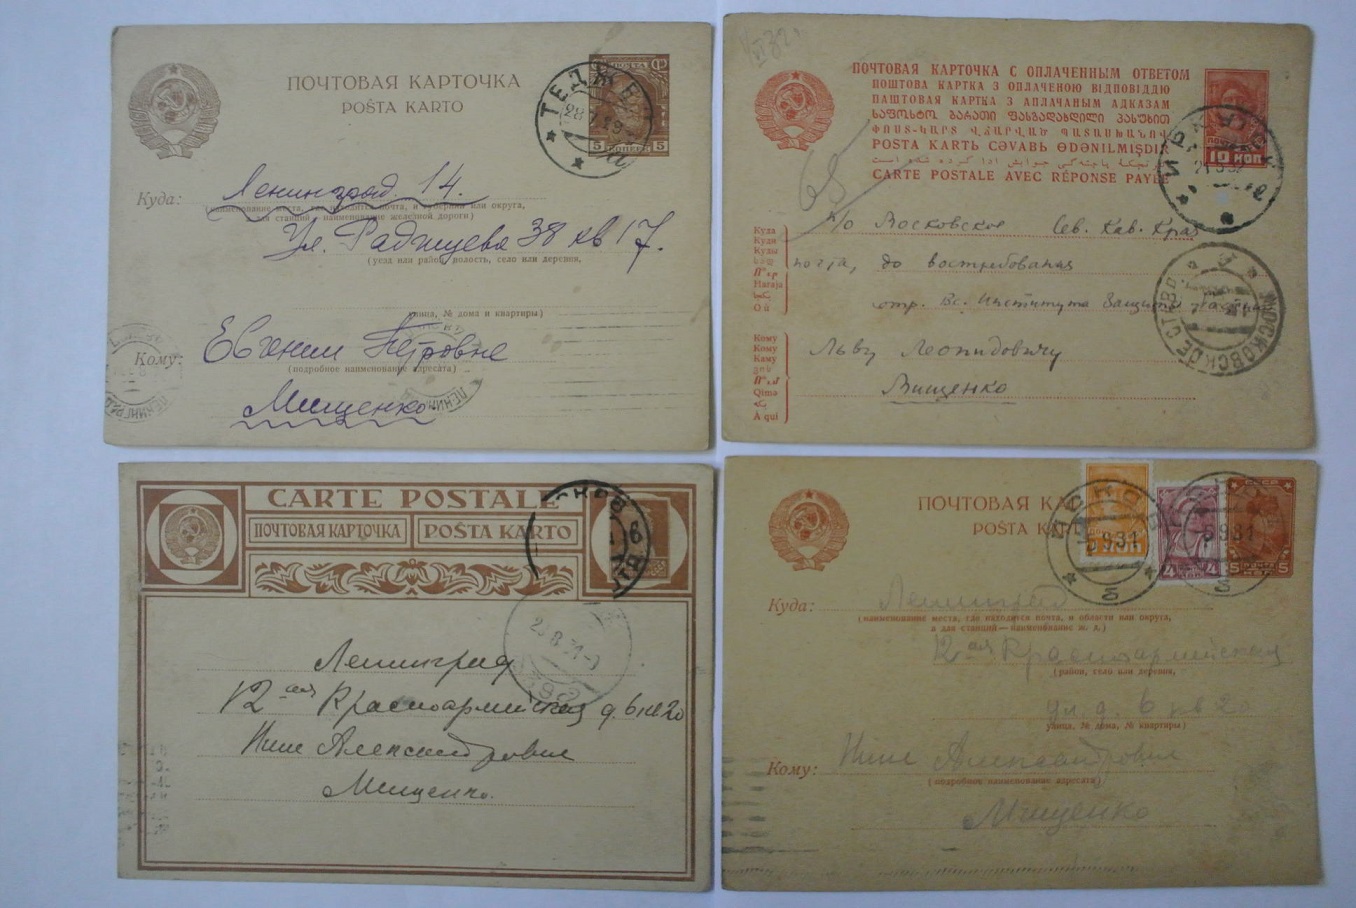 ПОЧТОВАЯ КАРТОЧКА
POŜTA KARTO
ПОЧТА
5 КОПЕЕК 5
ТЕДЖЕ
28.7.29
Куда:
Ленинград 14.
(наименование места, где находится почта, и губернии или округа,
а для станций – наименование железной дороги)
Ул. Радищева 38 кв 17.
(уезд или район, волость, село или деревня,
улица, № дома и квартиры)
Кому:
Евгении Петровне
(подробное наименование адресата)
ЛЕНИНГРАД
Мищенко
ПОЧТОВАЯ КАРТОЧКА С ОПЛАЧЕННЫМ ОТВЕТОМ
ПОШТОВА КАРТКА З ОПЛАЧЕНОЮ ВІДПОВІДДЮ
ПАШТОВАЯ КАРТКА З АПЛАЧАНЫМ АДКАЗАМ
POSTA KARTЬ CƏVABЬ ƟDƏNILMIŞDIR
CARTE POSTALE AVEC RÉPONSE PAYÉE
10 КОП
ИРКУТСК
68
п/о Московское Сев. Кав. Края
Куда
Куди
Куды
почта, до востребования
отр. Вс. Института Защиты
МОСКОВСКОЕ СТАВР.
Кому
Кому
Каму
Qimə
À qui
Льву Леонидовичу
Мищенко
CARTE POSTALE
ПОЧТОВАЯ КАРТОЧКА POŜTA KARTO
Ленинград
12ая Красноармейская д. 6 кв 20
Нине Александровне
Мищенко.
ПОЧТОВАЯ
POŜTA
СССР
4 4
5 5
5 9 31
Куда:
Ленинград
(наименование места, где находится почта, и области или округа,
а для станций—наименование ж. д.)
12ая Красноармейская
(район, село или деревня,
ул. д. 6 кв 20
улица, № дома, № квартиры)
Кому:
Нине Александровне
(подробное наименование адресата)
Мищенко